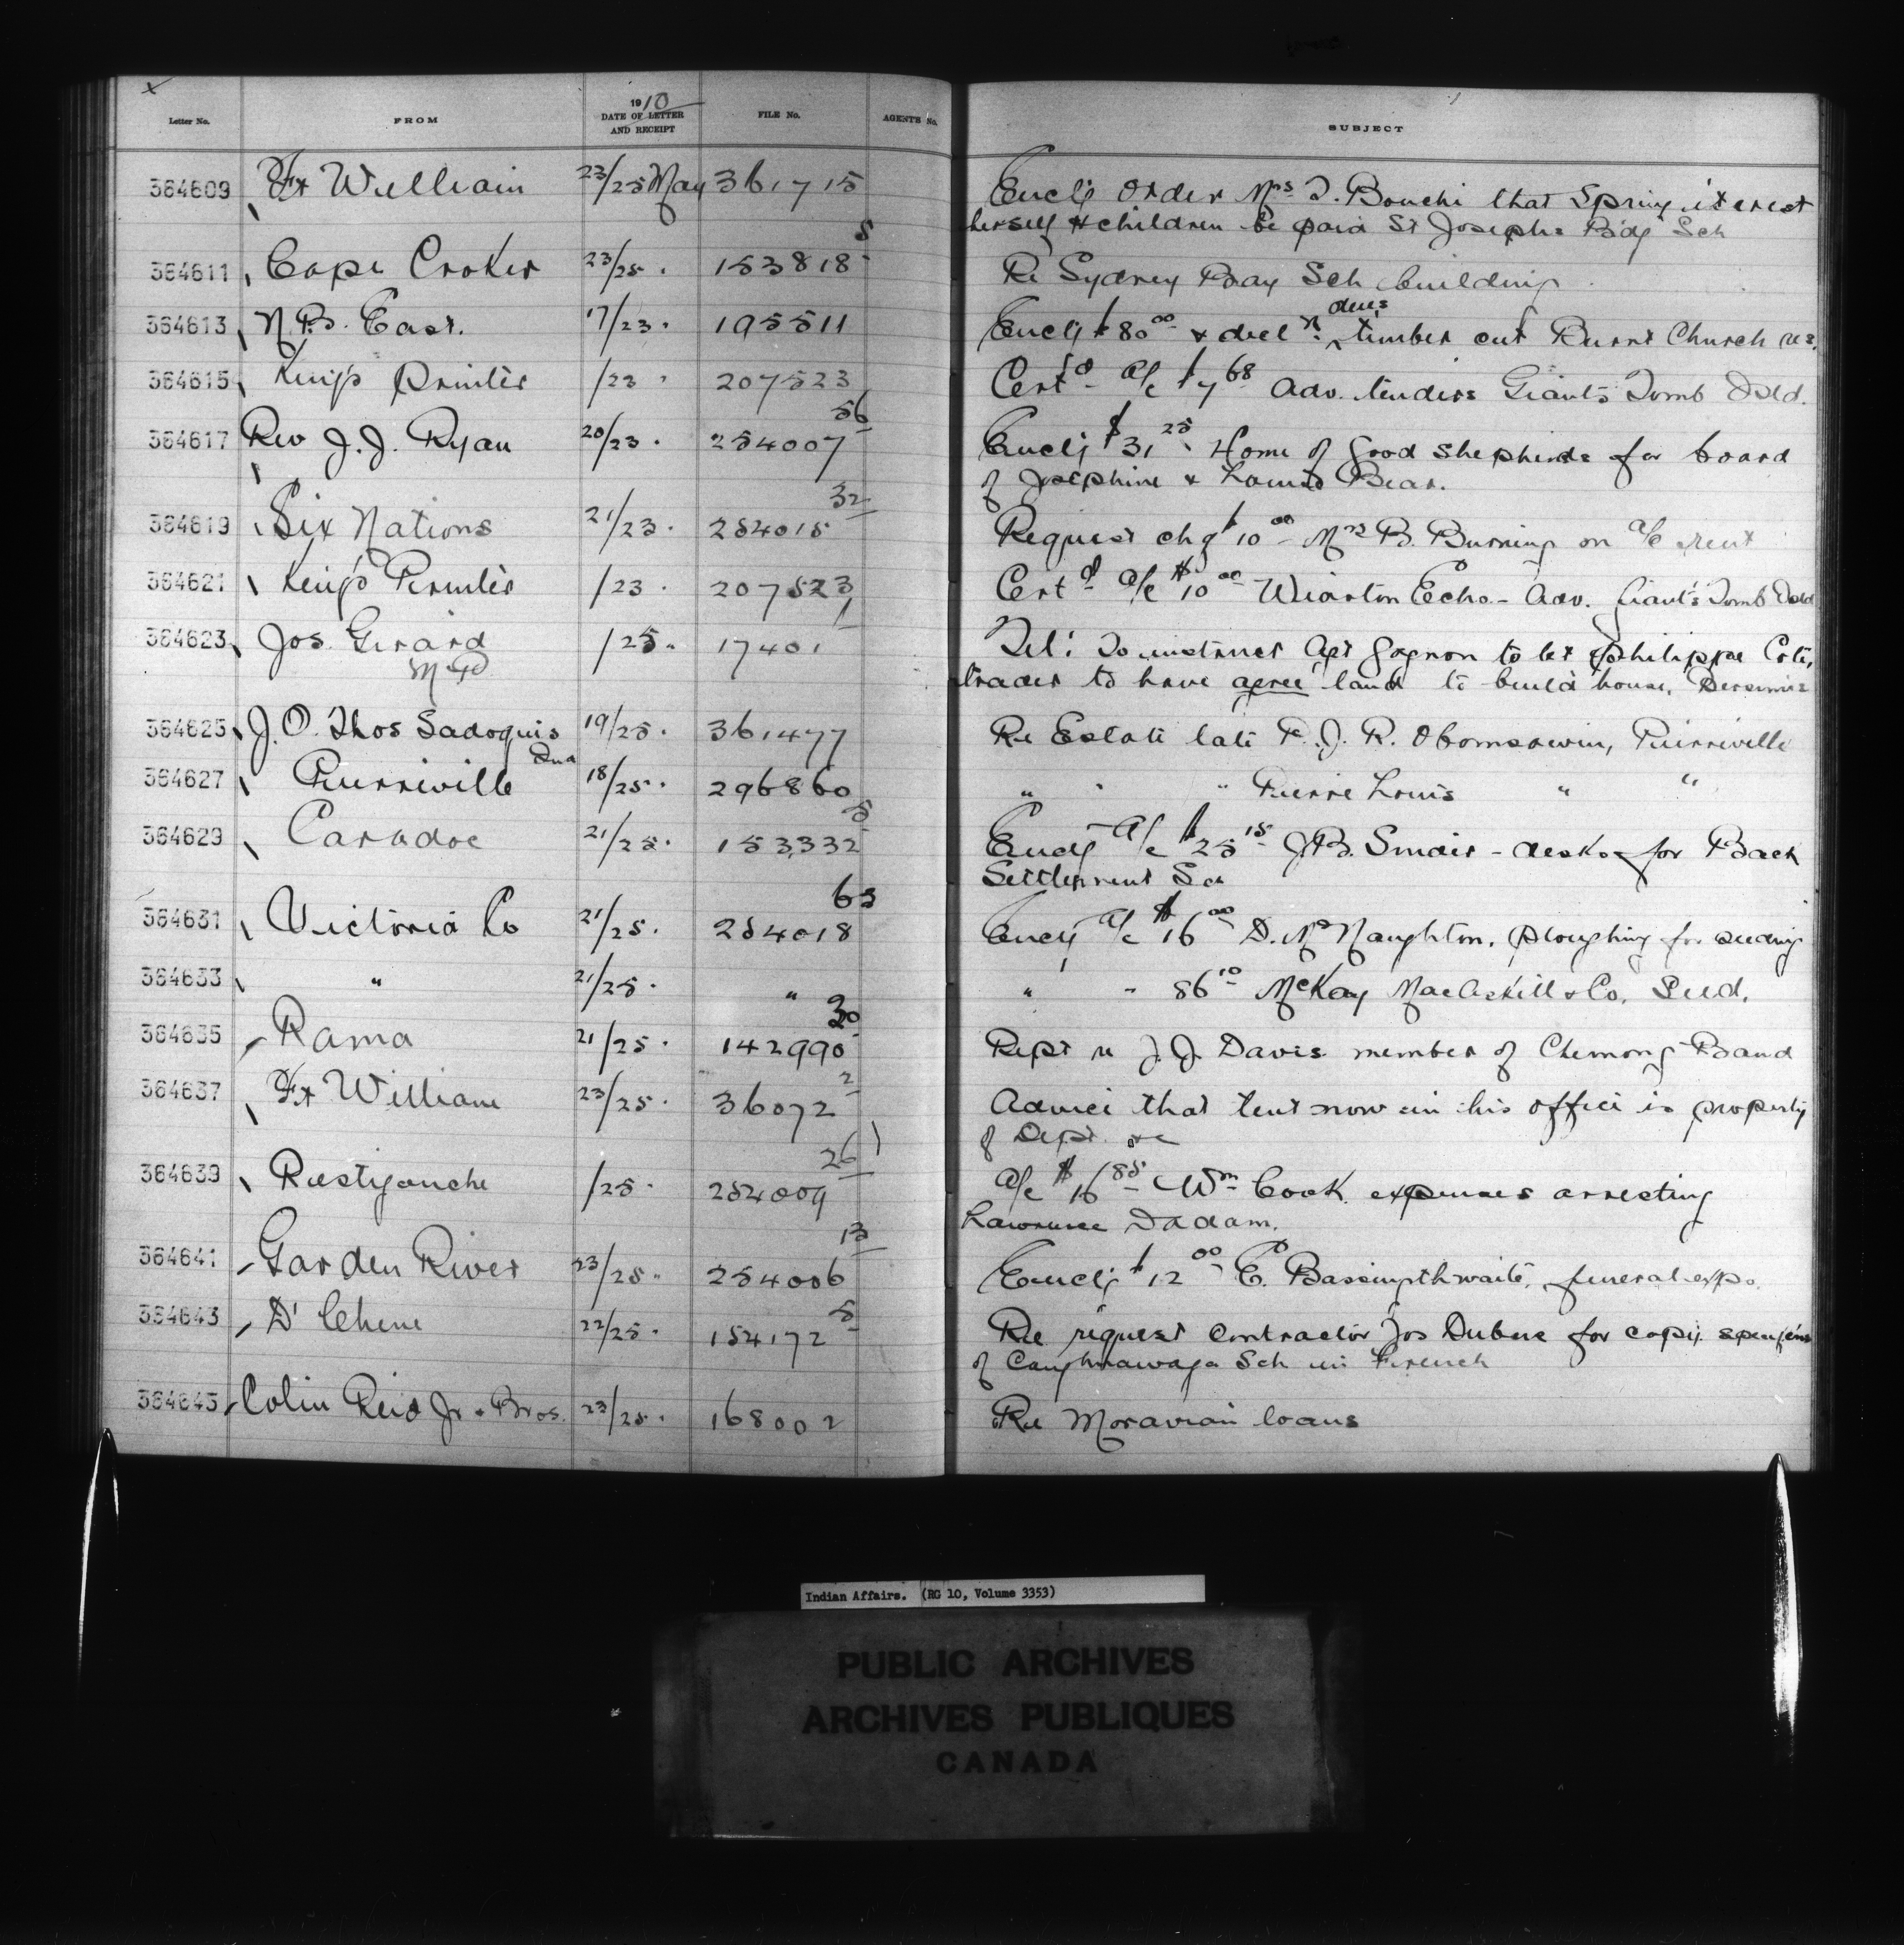 Letter No. FROM 1910 DATE OF LETTER AND RECEIPT FILE No. AGENT'S No. SUBJECT
364609 Ft William 23/25 May 361715 Encl'g Order Mrs Bouchi that Spring interest
herself & children be paid St Joseph's B'd'g Sch
364611 Cape Croker 23/25 153818 5 Re Sydney Bay Sch building
364613 N.B. East. 17/23 195511 Encl'g $80 00 & decl n dues timber cut Burnt Church res.
364615 King's Printer /23 207523 Cert d a/c $7 68 adv. tenders Giants Tomb Isld.
364617 Rev J.J. Ryan 20/23 254007 56 Encl'g $31 25 Home of Good Shepherds for board
of Josephine & Bear.
364619 Six Nations 21/23 254015 32 Request chq $10 00 Mrs B. Burning on a/c rent
364621 King's Printer /23 207523 1 Cert d a/c $10 00 Wiarton Echo - Adv. Giant's Tomb Isld
364623 Jos. Girard M.P. /25 17401 Tel: To instruct Agt Gagnon to let Philippe Coté,
trader to have agree' land to build house, Bersimis
364625 J.O. Thos Sadoquis 19/25 361477 Re Estate late F.J.R. Obomsawin, Pierreville
364627 Pierreville 18/25 296860 " " " Pierre Louis " "
364629 Caradoc 21/25 153,332 5 Encl'g a/c $25 15 J.B. - desks for Back
Settlement Sch
364631 Victoria Co 21/25 254018 63 Encl'g a/c $16 00 D. McNaughton, ploughing for seeding
364633 " 21/25 " " " 86 10 McKay MacAskill & Co. Seed.
364635 Rama 21/25 142990 30 Rept re J.J. Davis member of Chemong Band
364637 Ft William 23/25 36072 2 Advice that tent now in his office is property
of Dept. &c
364639 Restigouche /25 254009 26 a/c $16 85 Wm Cook expenses arresting
Lawrence Dadam.
364641 Garden River 23/25 254006 13 Encl'g $12 00 E. Bassingthwaite, funeral exps.
364643 D' Chene 22/25 154172 5 Re request Contractor Jos Dubuc for copy
of Caughnawaga Sch in French
364645 Colin Reid Jr & Bros. 23/25 168002 Re Moravian loans
Indian Affairs. (RG 10, Volume 3353)
PUBLIC ARCHIVES
ARCHIVES PUBLIQUES
CANADA